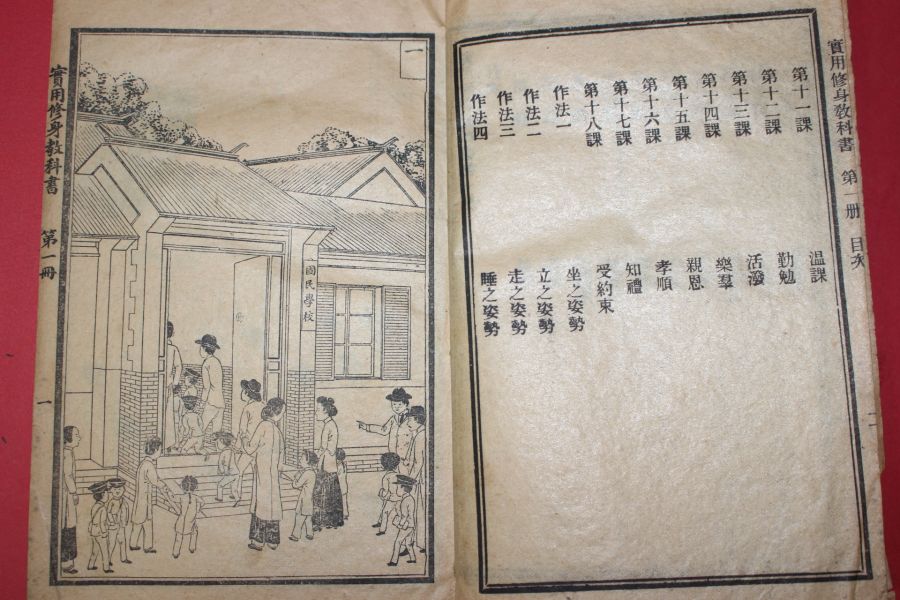 實用修身教科書 第一册 目次
第十一課 温課
第十二課 勤勉
第十三課 活潑
第十四課 樂羣
第十五課 親恩
第十六課 孝順
第十七課 知禮
第十八課 受約束
作法一 坐之姿勢
作法二 立之姿勢
作法三 走之姿勢
作法四 睡之姿勢
一
國民學校
實用修身教科書 第一冊
一